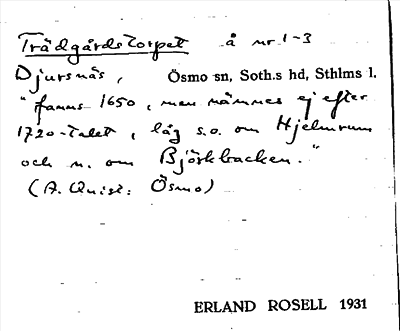 Trädgårdstorpet å nr 1-3
Djursnäs, Ösmo sn, Soth.s hd, Sthlms l.
"fanns 1650, men nämnes ej efter
1720-talet, låg s.o. om Hjelmrum
och n. om Björkbacken."
(A. Quist: Ösmo)
ERLAND ROSELL 1931